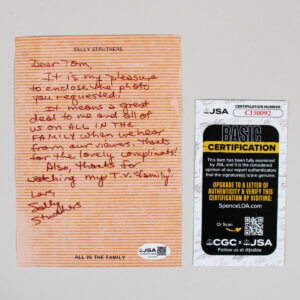 SALLY STRUTHERS
Dear Tom,
It is my pleasure
to enclose the photo
you requested.
It means a great
deal to me and all of
us on ALL IN THE
FAMILY when we hear
from our viewers. Thanks
for the lovely compliments!
Also, thanks for
watching my T.V. "family"
Love,
Sally
Struthers
JSA
ALL IN THE FAMILY
JSA
CERTIFICATION NUMBER
CI30092
BASIC
CERTIFICATION
This item has been fully examined
by JSA, and it is the considered
opinion of our expert authenticators
that the signature(s) is/are genuine.
UPGRADE TO A LETTER OF
AUTHENTICITY & VERIFY THIS
CERTIFICATION BY VISITING:
SpenceLOA.com
Or Scan
CGC x JSA
Follow us at @jsaloa